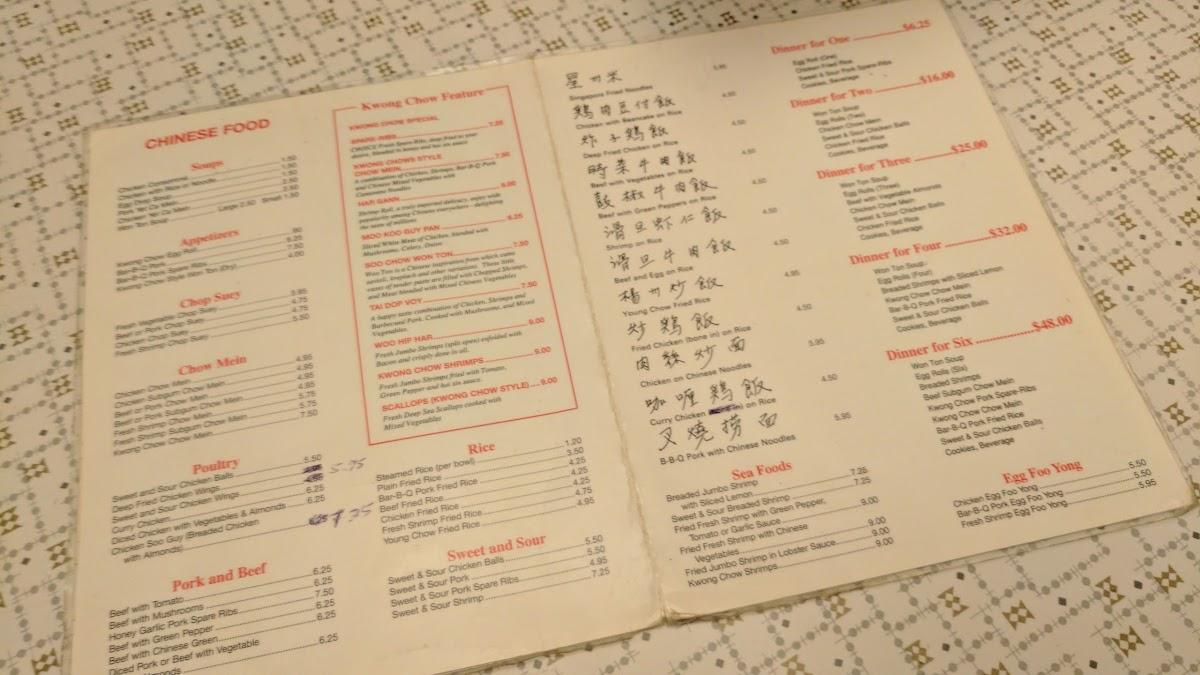 CHINESE FOOD
Soups
1.50
Chicken with Rice or Noodle 1.50
Egg Drop Soup 1.50
Pork Yet Ca Mein 2.50
Chicken Yet Ca Mein 2.50
Won Ton Soup Large 2.50 Small 1.50
Appetizers
Kwong Chow Egg Roll .90
Bar-B-Q Pork 6.25
Bar-B-Q Pork Spare Ribs 7.50
Kwong Chow Style Won Ton (Dry) 4.00
Chop Suey
Fresh Vegetable Chop Suey 3.95
Beef or Pork Chop Suey 4.75
Chicken Chop Suey 4.75
Fresh Shrimp Chop Suey 5.50
Chow Mein
Chicken Chow Mein 4.95
Chicken Subgum Chow Mein 4.95
Beef or Pork Chow Mein 4.95
Beef or Pork Subgum Chow Mein 4.95
Fresh Shrimp Chow Mein 5.75
Fresh Shrimp Subgum Chow Mein 5.75
Kwong Chow Chow Mein 7.50
Poultry
Sweet and Sour Chicken Balls 5.50
Deep Fried Chicken Wings 5.75
Sweet and Sour Chicken Wings
Curry Chicken 6.25
Diced Chicken with Vegetables & Almonds 6.25
Chicken Soo Guy (Breaded Chicken
with Almonds) 7.25
Pork and Beef
Beef with Tomato 6.25
Beef with Mushrooms 6.25
Honey Garlic Pork Spare Ribs 7.50
Beef with Green Pepper 6.25
Beef with Chinese Green 6.25
Diced Pork or Beef with Vegetable
Almonds 6.25
Kwong Chow Feature
KWONG CHOW SPECIAL
SPARE RIBS 7.25
CHOICE Fresh Spare Ribs, deep fried to your
desire, blended in honey and hot sis sauce
KWONG CHOWS STYLE
CHOW MEIN 7.50
A combination of Chicken, Shrimps, Bar-B-Q Pork
and Chinese Mixed Vegetables with
Cantonese Noodles
HAR GANN 9.00
Shrimp Roll, a truly imported delicacy, enjoy with
popularity among Chinese everywhere - delighting
the taste of millions
MOO KOO GUY PAN 6.25
Sliced White Meat of Chicken, blended with
Mushrooms, Celery, Onion
SOO CHOW WON TON 7.50
Won Ton is a Chinese inspiration from which came
ravioli, kreplach and other variations. These little
vases of tender paste are filled with Chopped Shrimps,
and Meat blended with Mixed Chinese Vegetables
TAI DOP VOY 7.50
A happy taste combination of Chicken, Shrimps and
Barbecued Pork. Cooked with Mushrooms, and Mixed
Vegetables.
WOO HIP HAR 9.00
Fresh Jumbo Shrimps (split open) enfolded with
Bacon and crisply done in oil.
KWONG CHOW SHRIMPS 9.00
Fresh Jumbo Shrimps fried with Tomato,
Green Pepper and hot sis sauce.
SCALLOPS (KWONG CHOW STYLE) 9.00
Fresh Deep Sea Scallops cooked with
Mixed Vegetables
Rice
Steamed Rice (per bowl) 1.20
Plain Fried Rice 3.50
Bar-B-Q Pork Fried Rice 4.25
Beef Fried Rice 4.25
Chicken Fried Rice 4.25
Fresh Shrimp Fried Rice 4.75
Young Chow Fried Rice 4.95
Sweet and Sour
Sweet & Sour Chicken Balls 5.50
Sweet & Sour Pork 5.50
Sweet & Sour Pork Spare Ribs 4.95
Sweet & Sour Shrimp 7.25
星州米 5.95
Singapore Fried Noodles
鷄肉豆付飯 4.50
Chicken with Beancake on Rice
炸子鷄飯 4.50
Deep Fried Chicken on Rice
時菜牛肉飯 4.50
Beef with Vegetables on Rice
豉椒牛肉飯 4.50
Beef with Green Peppers on Rice
滑旦虾仁飯 4.50
Shrimp on Rice
滑旦牛肉飯 4.50
Beef and Egg on Rice
楊州炒飯 4.95
Young Chow Fried Rice
炒鷄飯 4.50
Fried Chicken (bone in) on Rice
肉絲炒面 5.95
Chicken on Chinese Noodles
咖喱鷄飯 4.50
Curry Chicken on Rice
叉燒撈面 5.95
B-B-Q Pork with Chinese Noodles
Sea Foods
Breaded Jumbo Shrimp
with Sliced Lemon 7.25
Sweet & Sour Breaded Shrimp 7.25
Fried Fresh Shrimp with Green Pepper,
Tomato or Garlic Sauce 9.00
Fried Fresh Shrimp with Chinese
Vegetables 9.00
Fried Jumbo Shrimp in Lobster Sauce 9.00
Kwong Chow Shrimps 9.00
Dinner for One $6.25
Egg Roll (One)
Chicken Fried Rice
Sweet & Sour Pork Spare-Ribs
Cookies, Beverage
Dinner for Two $16.00
Won Ton Soup
Egg Rolls (Two)
Chicken Chow Mein
Sweet & Sour Chicken Balls
Chicken Fried Rice
Cookies, Beverage
Dinner for Three $25.00
Won Ton Soup
Egg Rolls (Three)
Beef with Vegetable Almonds
Chicken Chow Mein
Sweet & Sour Chicken Balls
Chicken Fried Rice
Cookies, Beverage
Dinner for Four $32.00
Won Ton Soup
Egg Rolls (Four)
Breaded Shrimps with Sliced Lemon
Kwong Chow Chow Mein
Bar-B-Q Pork Fried Rice
Sweet & Sour Chicken Balls
Cookies, Beverage
Dinner for Six $48.00
Won Ton Soup
Egg Rolls (Six)
Breaded Shrimps
Beef Subgum Chow Mein
Kwong Chow Pork Spare-Ribs
Kwong Chow Chow Mein
Bar-B-Q Pork Fried Rice
Sweet & Sour Chicken Balls
Cookies, Beverage
Egg Foo Yong
Chicken Egg Foo Yong 5.50
Bar-B-Q Pork Egg Foo Yong 5.50
Fresh Shrimp Egg Foo Yong 5.95